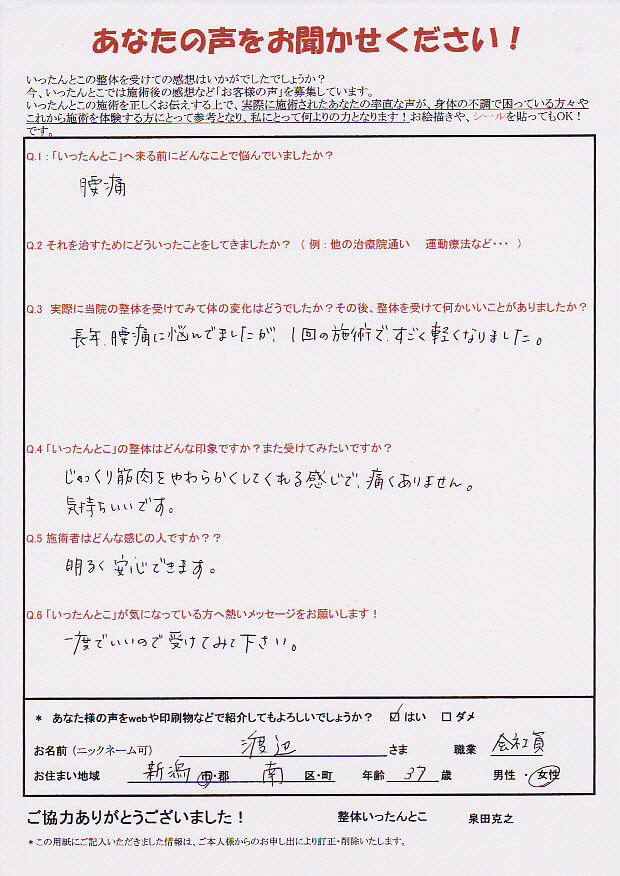 あなたの声をお聞かせください！
いったんとこの整体を受けての感想はいかがでしたでしょうか？
今、いったんとこでは施術後の感想など「お客様の声」を募集しています。
いったんとこの施術を正しくお伝えする上で、実際に施術されたあなたの率直な声が、身体の不調で困っている方々や
これから施術を体験する方にとって参考となり、私にとって何よりの力となります！お絵描きや、シールを貼ってもOK！
です。
Q.1：「いったんとこ」へ来る前にどんなことで悩んでいましたか？
腰痛
Q.2 それを治すためにどういったことをしてきましたか？（ 例：他の治療院通い　運動療法など・・・ ）
Q.3　実際に当院の整体を受けてみて体の変化はどうでしたか？その後、整体を受けて何かいいことがありましたか？
長年、腰痛に悩んでましたが、1回の施術で、すごく軽くなりました。
Q.4「いったんとこ」の整体はどんな印象ですか？また受けてみたいですか？
じっくり筋肉をやわらかくしてくれる感じで、痛くありません。
気持ちいいです。
Q.5 施術者はどんな感じの人ですか？？
明るく安心できます。
Q.6「いったんとこ」が気になっている方へ熱いメッセージをお願いします！
一度でいいので受けてみて下さい。
＊ あなた様の声をwebや印刷物などで紹介してもよろしいでしょうか？ ☑はい □ダメ
お名前（ニックネーム可） 渡辺 さま 職業 会社員
お住まい地域 新潟 市・郡 南 区・町 年齢 37 歳 男性 ・ 女性
ご協力ありがとうございました！ 整体いったんとこ 泉田克之
＊この用紙にご記入いただきました情報は、ご本人様からのお申し出により訂正・削除いたします。